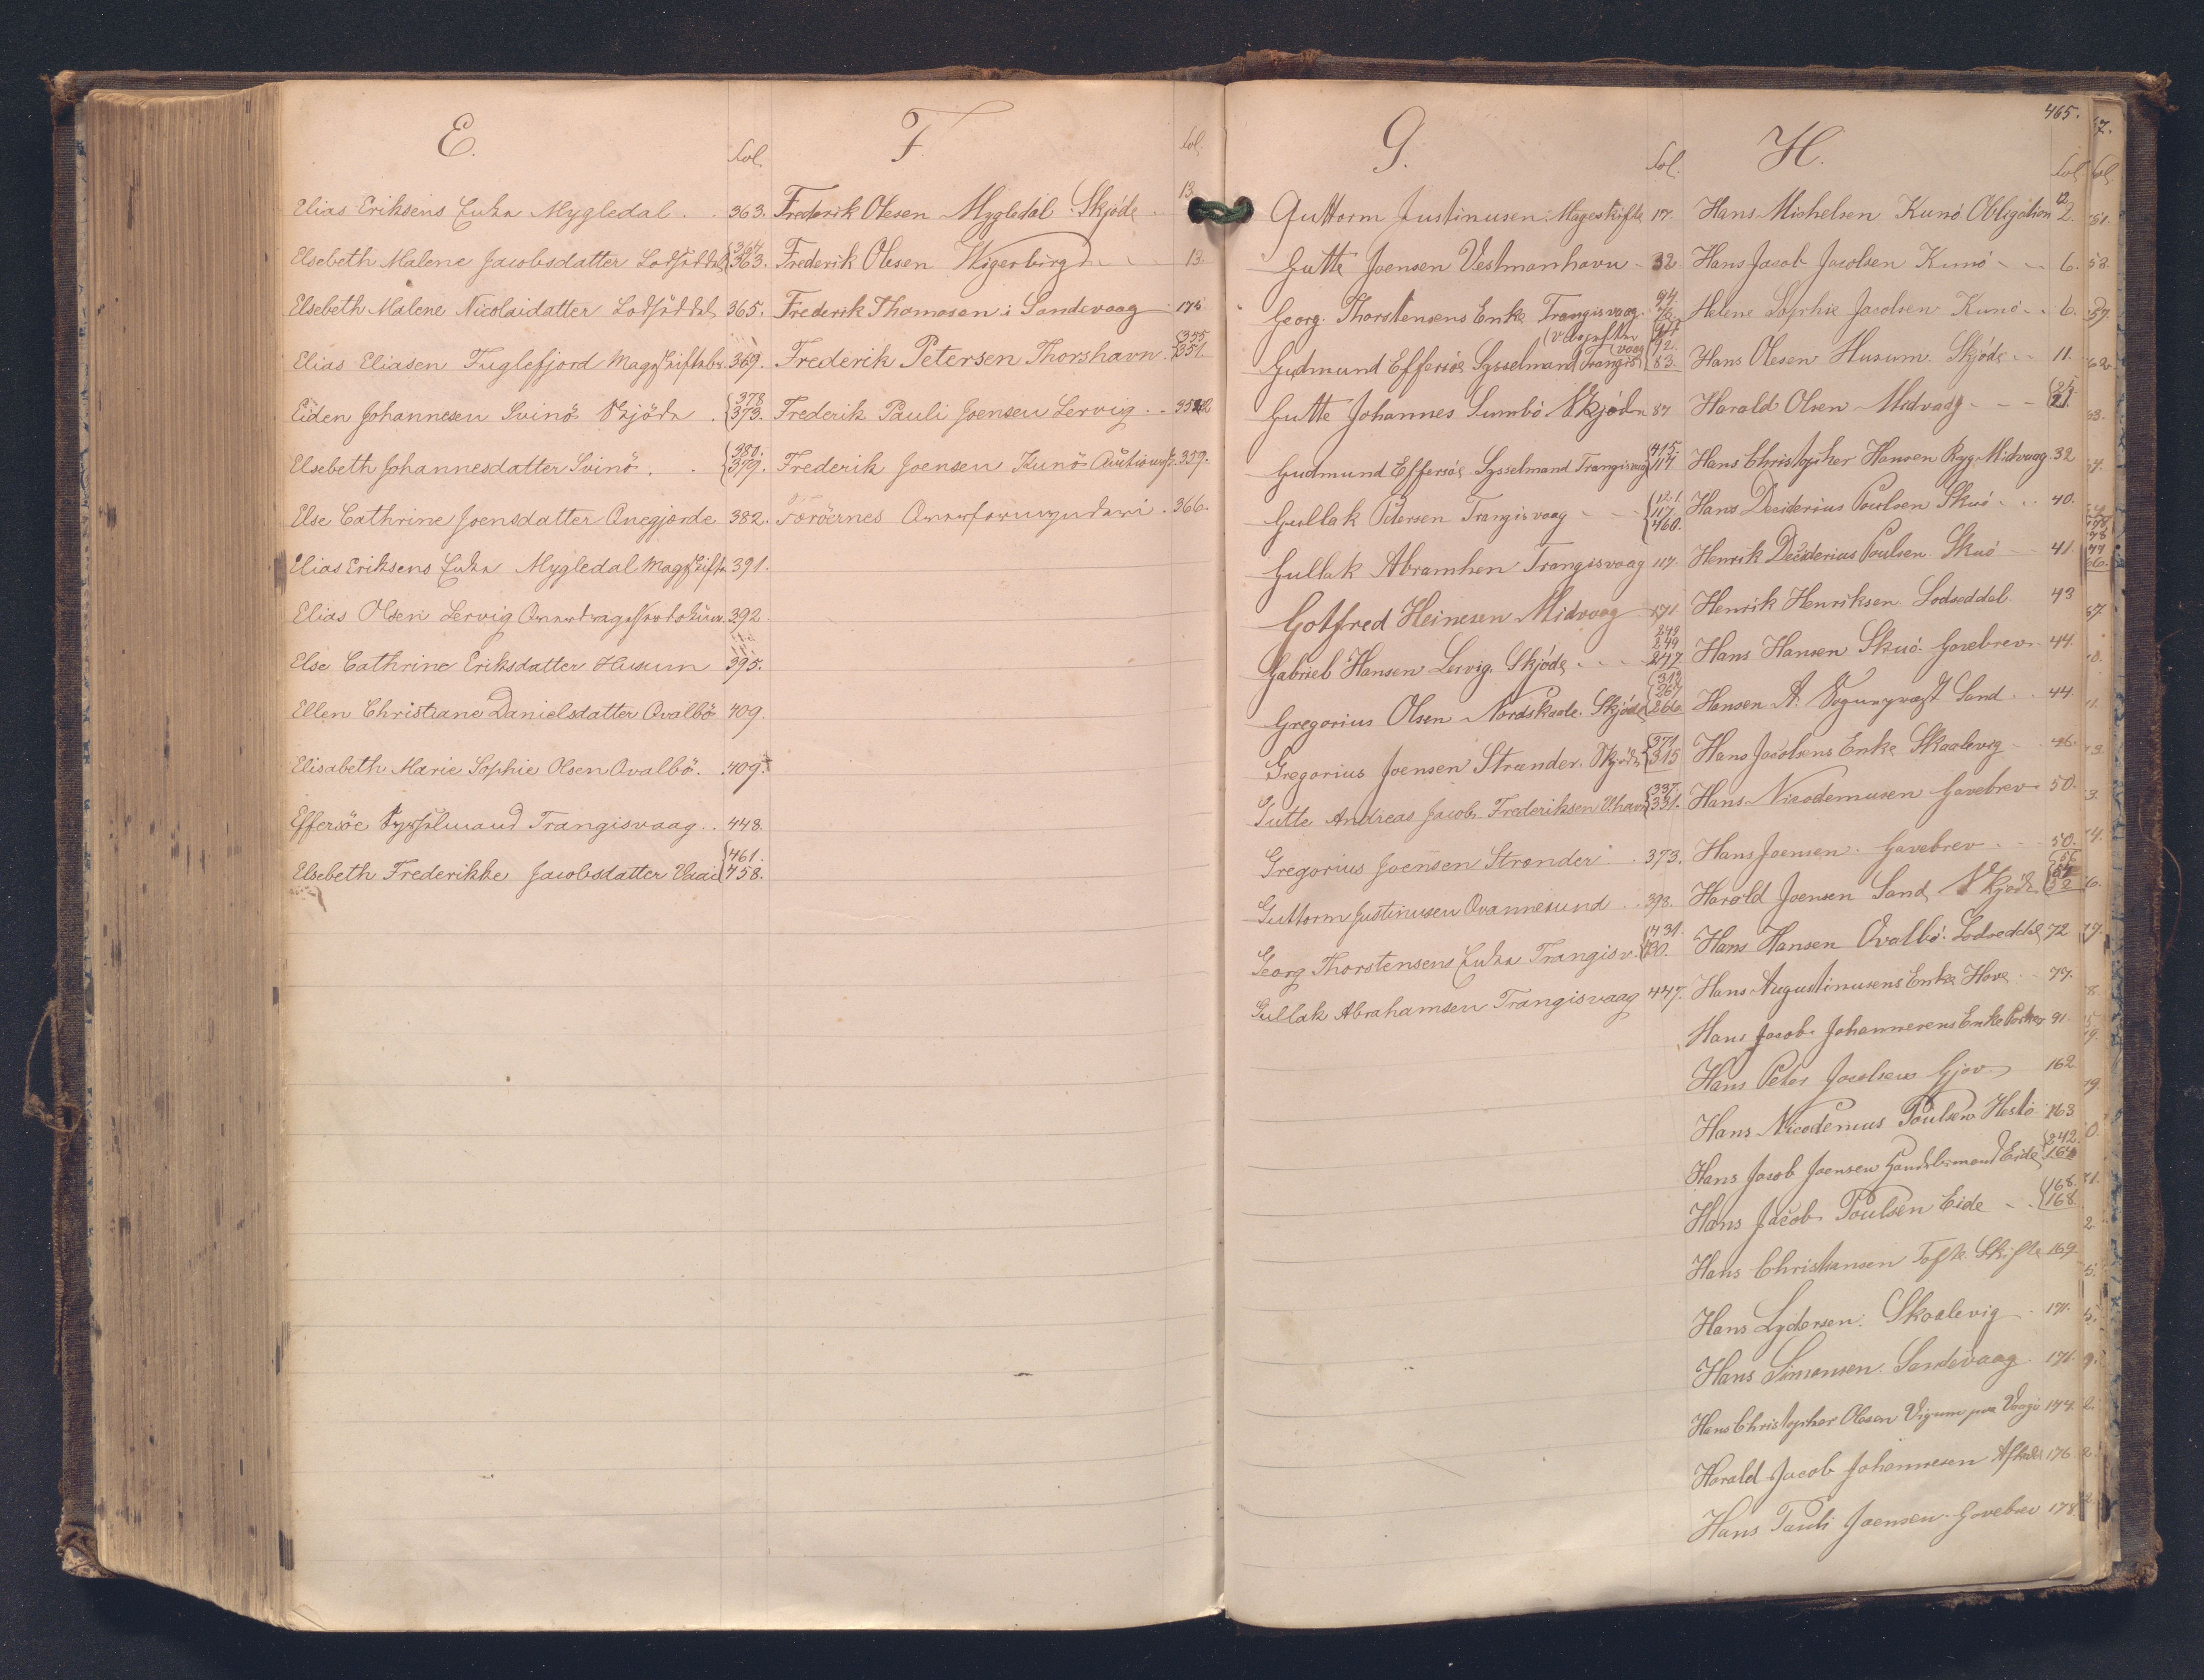 E.
Fol.
Elias Eriksens Enke Mygledal . . 363.
Elsebeth Malene Jacobsdatter Lodseddel {364. 363.
Elsebeth Malene Nicolaidatter Lodseddel 365.
Elias Eliasen Fuglefjord Mageskiftebr. 369.
Eiden Johannesen Svinö Skjöde . {378 373.
Elsebeth Johannesdatter Svinö . . {380. 379.
Else Cathrine Joensdatter Qnegjorde 382.
Elias Eriksens Enke Mygledal Mageskifte 391.
Elias Olsen Lervig 392.
Else Cathrine Eriksdatter Husum 395.
Ellen Christiane Danielsdatter Qvalbö 409.
Elisabeth Marie Sophie Olsen Qvalbö. 409.
Effersöe Sysselmand Trangisvaag . . 448.
Elsebeth Frederikke Jacobsdatter Vaai {461. 458.
F
Fol.
Frederik Olesen Mygledal Skjöde . 13
Frederik Olesen Wigerbirg 13.
Frederik Thomasen i Sandevaag 175
Frederik Petersen Thorshavn . {355 351.
Frederik Pauli Joensen Lervig . .
Frederik Joensen Kunö 339.
Færöernes 366.
465.
G.
Fol.
Guttorm Justinusen. Mageskifte 17.
Gutte Joensen Vestmanhavn - 32
Georg Thorstensens Enke Trangisvaag. 94. 76
Gudmund Effersöe Sysselmand Trangisvaag 92. 83.
Gutte Johannes Sumbö Skjöde 87
Gudmund Effersöe Sysselmand Trangisvaag {415. 114
Gullak Petersen Trangisvaag - - {121 117. 460.
Gullak Abramhen Trangisvaag 117.
Gotfred Heinesen Midvaag 171
Gabriel Hansen Lervig. Skjöde . . . 249 249 247
Gregorius Olsen Nordskaale. Skjöde {312 267 266
Gregorius Joensen Strænder. Skjöde {371 315
Gutte Andreas Jacob Frederiksen Vhavn {337. 331.
Gregorius Joensen Strænder . . 373.
Guttorm Justinusen Qvannesund . . 398.
Georg Thorstensens Enke Trangisv. {431. 430.
Gullak Abrahamsen Trangisvaag 447.
H.
Fol.
Hans Michelsen Kunö Obligation 12 2.
Hans Jacob Jacobsen Kunö - - 6.
Helene Sophie Jacobsen Kunö . . 6.
Hans Olesen Husum Skjöde - - 11.
Harald Olsen Midvaag - - - {24. 21
Hans Christopher Hansen Ryg. Midvaag 32
Hans Desiderius Poulsen Skuö . . 40.
Henrik Desiderius Poulsen Skuö - 41.
Henrik Henriksen Lodseddel 43
Hans Hansen Skuö Gavebrev. 44.
Hansen A. Sand . . 44.
Hans Jacobsens Enke Skaalevig . 46.
Hans Nicodemusen Gavebrev. 50.
Hans Joensen. Gavebrev . . 50.
Harald Joensen Sand, Skjöde {56 54 52
Hans Hansen Qvalbö. Lodseddel 72
Hans Augustinusens Enke Hove . . 77.
Hans Jacob Johannesens Enke Porkere 91
Hans Peter Jacobsen Gjov. 162
Hans Nicodemus Poulsen Hestö 163
Hans Jacob Joensen Handelsmand Eide {242. 164
Hans Jacob Poulsen Eide - . {168. 168.
Hans Christiansen Tofte Skifte 169
Hans Lydersen. Skaalevig . 171.
Hans Simonsen. Sandevaag. 171.
Hans Christopher Olesen Vigum paa Vaagö 174.
Harald Jacob Johannesen Afkald 176
Hans Pauli Joensen. Gavebrev 178